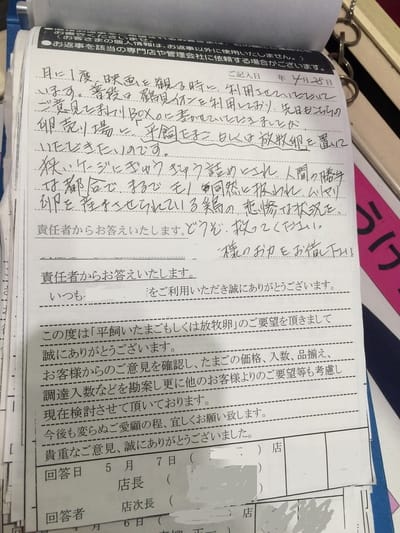 (お客さまの個人情報は、お返事以外に使用いたしません。)
●お返事を該当の専門店や管理会社に依頼する場合がございます。
ご記入日 年 4月25日
月に1度、映画を観る時に、利用させていただいて
います。普段は
ご意見BOXに書かせていただきましたが
卵売り場に、平飼たまごもしくは放牧卵を置いて
いただきたいのです。
狭いケージにぎゅうぎゅう詰めにされ、人間の勝手
な都合で、まるでモノ同然に扱われ、ムリヤリ
卵を産まさせられている鶏の悲惨な状況を、
どうぞ、救ってください。
様のお力をお借し下さい。
責任者からお答えいたします。
責任者からお答えいたします。
いつも をご利用いただき誠にありがとうございます。
この度は「平飼いたまごもしくは放牧卵」のご要望を頂きまして
誠にありがとうございます。
お客様からのご意見を確認し、たまごの価格、入数、品揃え、
調達入数などを勘案し更に他のお客様よりのご要望等も考慮し
現在検討させて頂いております。
今後も変らぬご愛顧の程、宜しくお願い致します。
貴重なご意見、誠にありがとうございました。
回答日 5月7日( )店
店長( )
回答者 店次長(
4月6日( 店
うけ